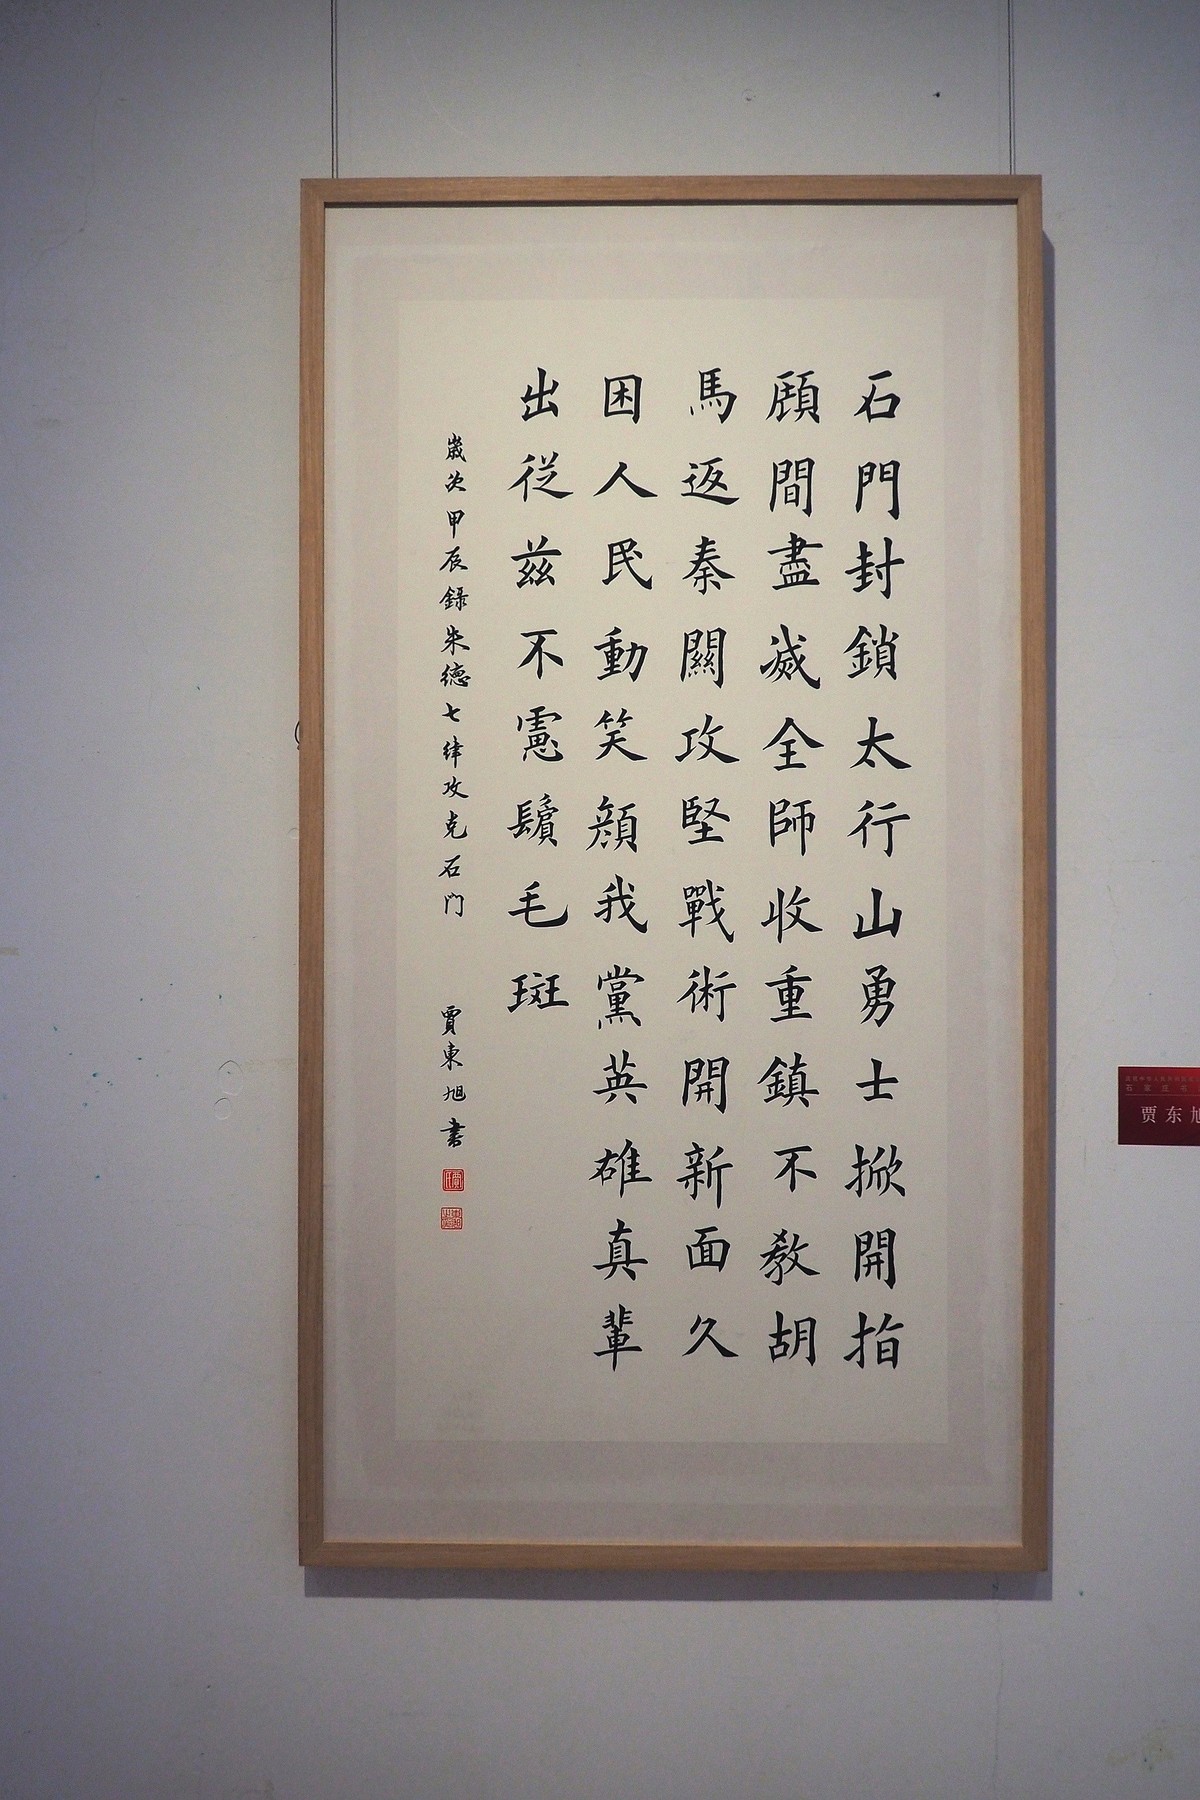 石門封鎖太行山勇士掀開指
頋間盡滅全師收重鎮不教胡
馬返秦關攻堅戰術開新面久
困人民動笑顔我黨英雄真輩
出従兹不慮鬢毛斑
歲次甲辰錄朱德七律攻克石门
賈東旭書
贾东旭